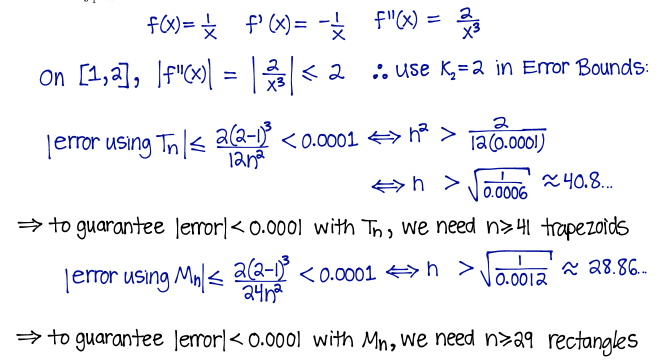 f(x) = 1/x f'(x) = -1/x f''(x) = 2/x³
On [1,2], |f''(x)| = |2/x³| ≤ 2 ∴ use K₂=2 in Error Bounds:
|error using Tn| ≤ 2(2-1)³/12n² < 0.0001 ⟺ n² > 2/12(0.0001)
⟺ n > √(1/0.0006) ≈ 40.8...
⇒ to guarantee |error| < 0.0001 with Tn, we need n ≥ 41 trapezoids
|error using Mn| ≤ 2(2-1)³/24n² < 0.0001 ⟺ n > √(1/0.0012) ≈ 28.86...
⇒ to guarantee |error| < 0.0001 with Mn, we need n ≥ 29 rectangles